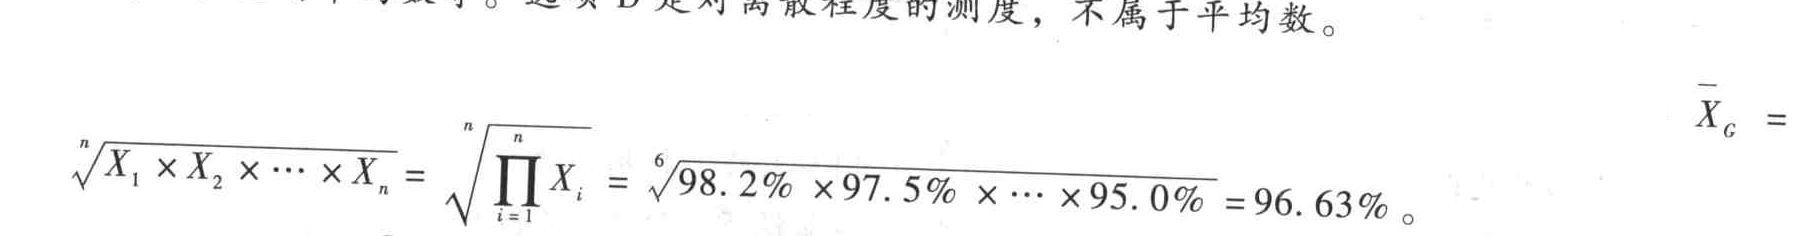 是对离散程度的测度，不属于平均数。
X̄_G =
ⁿ√(X₁ × X₂ × ⋯ × Xₙ) = ⁿ√(∏ᵢ₌₁ⁿ Xᵢ) = ⁶√(98.2% × 97.5% × ⋯ × 95.0%) = 96.63%。